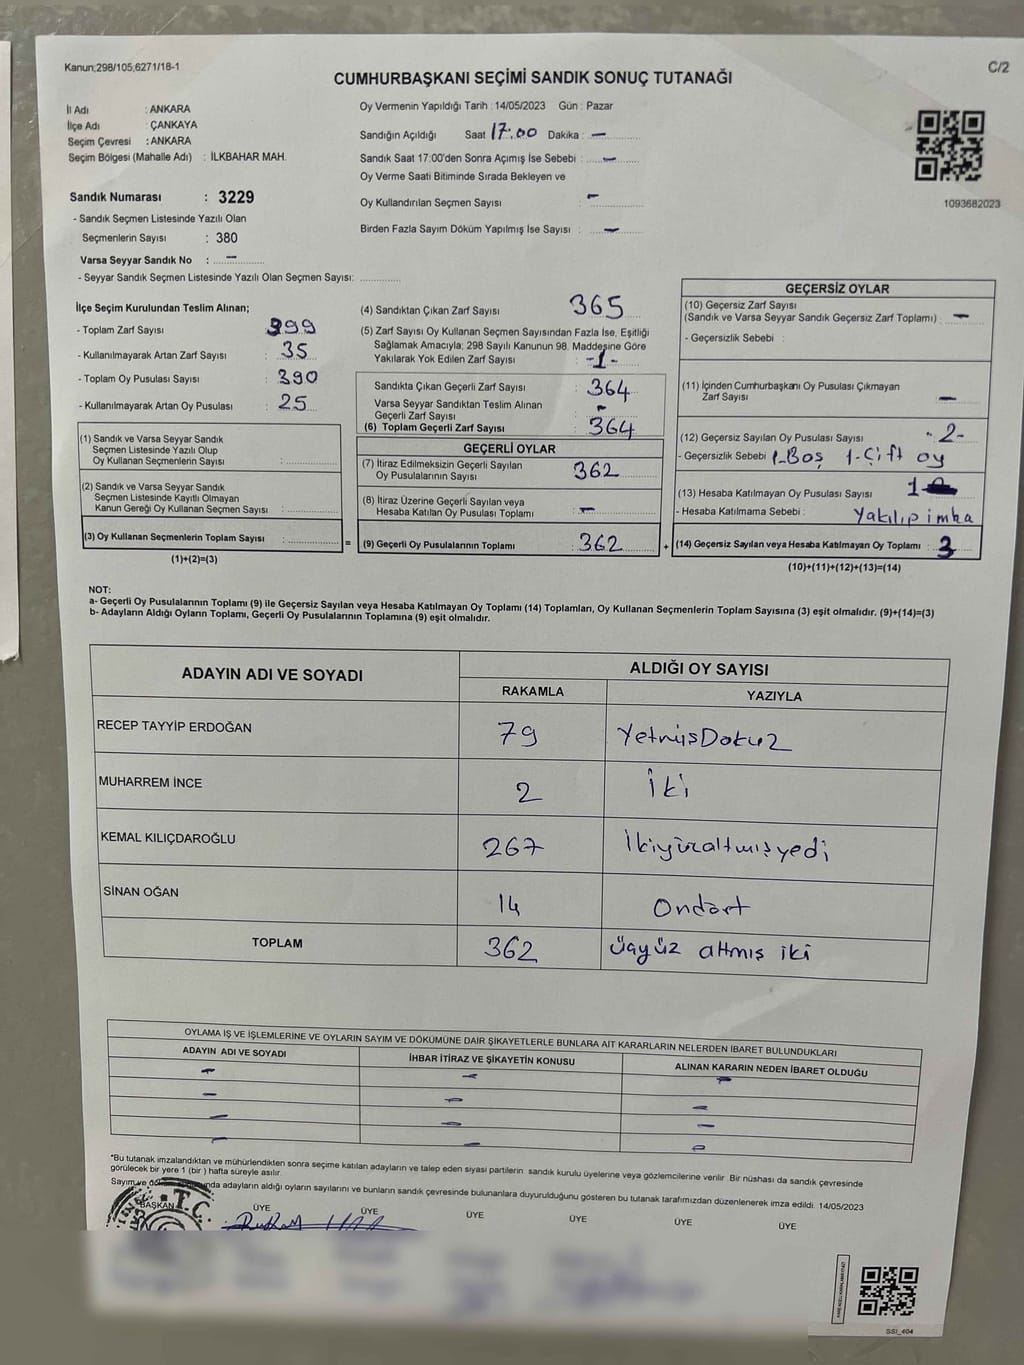 Kanun;298/105,6271/18-1
C/2
CUMHURBAŞKANI SEÇİMİ SANDIK SONUÇ TUTANAĞI
İl Adı : ANKARA
İlçe Adı : ÇANKAYA
Seçim Çevresi : ANKARA
Seçim Bölgesi (Mahalle Adı) : İLKBAHAR MAH.
Oy Vermenin Yapıldığı Tarih : 14/05/2023 Gün : Pazar
Sandığın Açıldığı Saat 17:00 Dakika : —
Sandık Saat 17:00'den Sonra Açımış İse Sebebi : —
Oy Verme Saati Bitiminde Sırada Bekleyen ve
Oy Kullandırılan Seçmen Sayısı : —
Birden Fazla Sayım Döküm Yapılmış İse Sayısı : —
1093682023
Sandık Numarası : 3229
- Sandık Seçmen Listesinde Yazılı Olan
Seçmenlerin Sayısı : 380
Varsa Seyyar Sandık No : —
- Seyyar Sandık Seçmen Listesinde Yazılı Olan Seçmen Sayısı:
İlçe Seçim Kurulundan Teslim Alınan;
- Toplam Zarf Sayısı : 399
- Kullanılmayarak Artan Zarf Sayısı : 35
- Toplam Oy Pusulası Sayısı : 390
- Kullanılmayarak Artan Oy Pusulası : 25
(1) Sandık ve Varsa Seyyar Sandık
Seçmen Listesinde Yazılı Olup
Oy Kullanan Seçmenlerin Sayısı :
(2) Sandık ve Varsa Seyyar Sandık
Seçmen Listesinde Kayıtlı Olmayan
Kanun Gereği Oy Kullanan Seçmen Sayısı :
(3) Oy Kullanan Seçmenlerin Toplam Sayısı :
(1)+(2)=(3)
=
(4) Sandıktan Çıkan Zarf Sayısı : 365
(5) Zarf Sayısı Oy Kullanan Seçmen Sayısından Fazla İse, Eşitliği
Sağlamak Amacıyla; 298 Sayılı Kanunun 98. Maddesine Göre
Yakılarak Yok Edilen Zarf Sayısı : -1-
Sandıkta Çıkan Geçerli Zarf Sayısı : 364
Varsa Seyyar Sandıktan Teslim Alınan
Geçerli Zarf Sayısı : -
(6) Toplam Geçerli Zarf Sayısı : 364
GEÇERLİ OYLAR
(7) İtiraz Edilmeksizin Geçerli Sayılan
Oy Pusulalarının Sayısı : 362
(8) İtiraz Üzerine Geçerli Sayılan veya
Hesaba Katılan Oy Pusulası Toplamı : —
(9) Geçerli Oy Pusulalarının Toplamı : 362
+
GEÇERSİZ OYLAR
(10) Geçersiz Zarf Sayısı
(Sandık ve Varsa Seyyar Sandık Geçersiz Zarf Toplamı) : —
- Geçersizlik Sebebi :
(11) İçinden Cumhurbaşkanı Oy Pusulası Çıkmayan
Zarf Sayısı : —
(12) Geçersiz Sayılan Oy Pusulası Sayısı : -2-
- Geçersizlik Sebebi : 1-Boş 1-Çift oy
(13) Hesaba Katılmayan Oy Pusulası Sayısı : 1
- Hesaba Katılmama Sebebi : Yakılıp imha
(14) Geçersiz Sayılan veya Hesaba Katılmayan Oy Toplamı : 3
(10)+(11)+(12)+(13)=(14)
NOT:
a- Geçerli Oy Pusulalarının Toplamı (9) ile Geçersiz Sayılan veya Hesaba Katılmayan Oy Toplamı (14) Toplamları, Oy Kullanan Seçmenlerin Toplam Sayısına (3) eşit olmalıdır. (9)+(14)=(3)
b- Adayların Aldığı Oyların Toplamı, Geçerli Oy Pusulalarının Toplamına (9) eşit olmalıdır.
ADAYIN ADI VE SOYADI
ALDIĞI OY SAYISI
RAKAMLA YAZIYLA
RECEP TAYYİP ERDOĞAN 79 YetmişDokuz
MUHARREM İNCE 2 İki
KEMAL KILIÇDAROĞLU 267 İkiyüzaltmışyedi
SİNAN OĞAN 14 Ondört
TOPLAM 362 Üçyüz altmış iki
OYLAMA İŞ VE İŞLEMLERİNE VE OYLARIN SAYIM VE DÖKÜMÜNE DAİR ŞİKAYETLERLE BUNLARA AİT KARARLARIN NELERDEN İBARET BULUNDUKLARI
ADAYIN ADI VE SOYADI İHBAR İTİRAZ VE ŞİKAYETİN KONUSU ALINAN KARARIN NEDEN İBARET OLDUĞU
— — —
— — —
— — —
— — —
*Bu tutanak imzalandıktan ve mühürlendikten sonra seçime katılan adayların ve talep eden siyasi partilerin sandık kurulu üyelerine veya gözlemcilerine verilir Bir nüshası da sandık çevresinde
görülecek bir yere 1 (bir ) hafta süreyle asılır.
Sayım ve adayların aldığı oyların sayılarını ve bunların sandık çevresinde bulunanlara duyurulduğunu gösteren bu tutanak tarafımızdan düzenlenerek imza edildi. 14/05/2023
BAŞKAN ÜYE ÜYE ÜYE ÜYE ÜYE ÜYE
T.C.
SSI_404